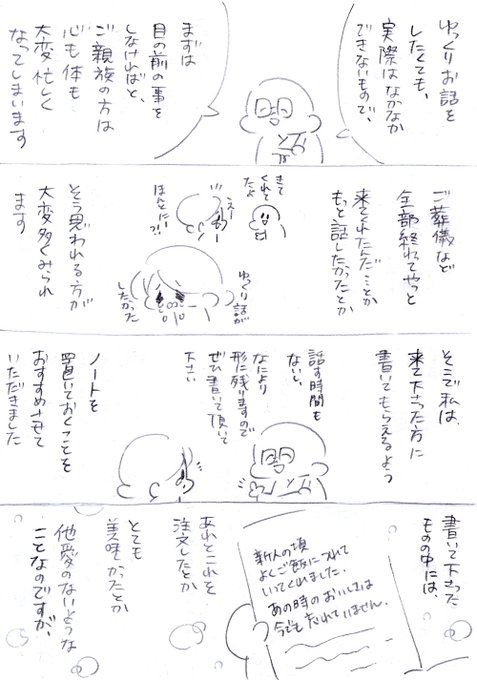 ゆっくりお話を
したくても、
実際はなかなか
できないもので、
まずは
目の前の事を
しなければと、
ご親族の方は
心も体も
大変忙しく
なってしまいます
ご葬儀など
全部終わってやっと
来てくれたんだ…ことか
もっと話したかったとか
きて
くれて
たよ
えー
ほんとに!?
ゆっくり話が
したかった
そう思われる方が
大変多くみられ
ます
そこで私は、
来て下さった方に
書いてもらえるよう
話す時間も
ないし、
なにより
形に残りますので
ぜひ書いて頂いて
下さい
ノートを
置いておくことを
おすすめさせて
いただきました
書いて下さった
ものの中には、
新人の頃
よくご飯につれて
いってくれました。
あの時のおいしさは
今でも忘れていません。
あれとこれを
注文したとか
とても
美味かったとか
他愛のないような
ことなのですが、